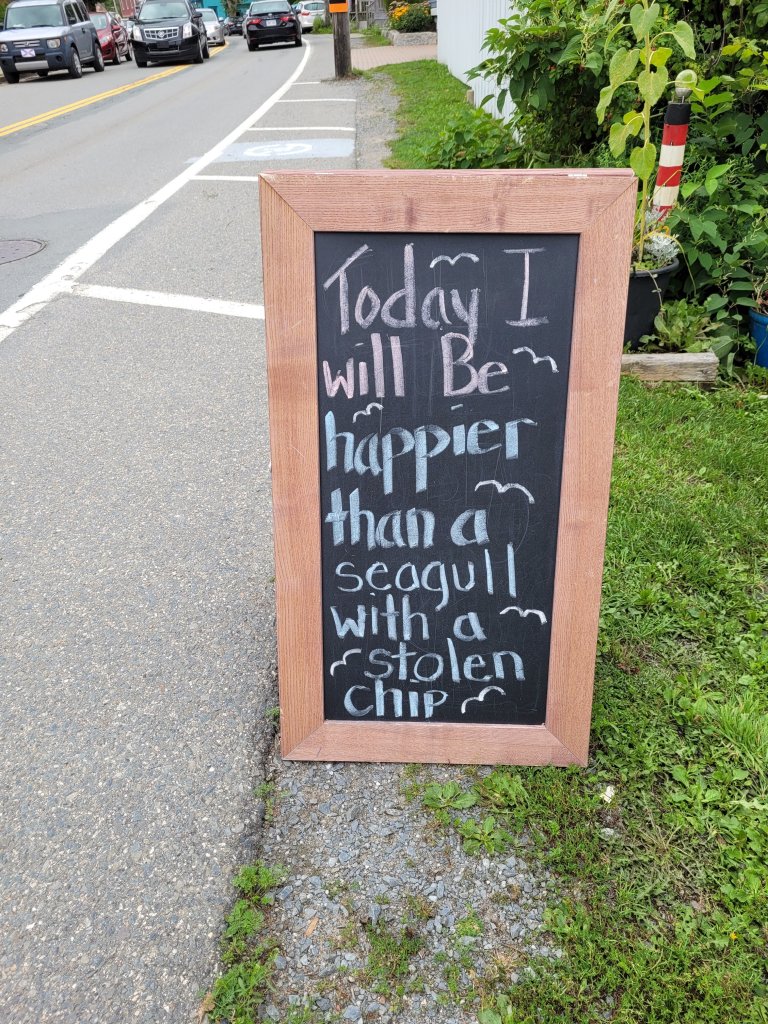 Today I
will Be
happier
than a
seagull
with a
stolen
chip